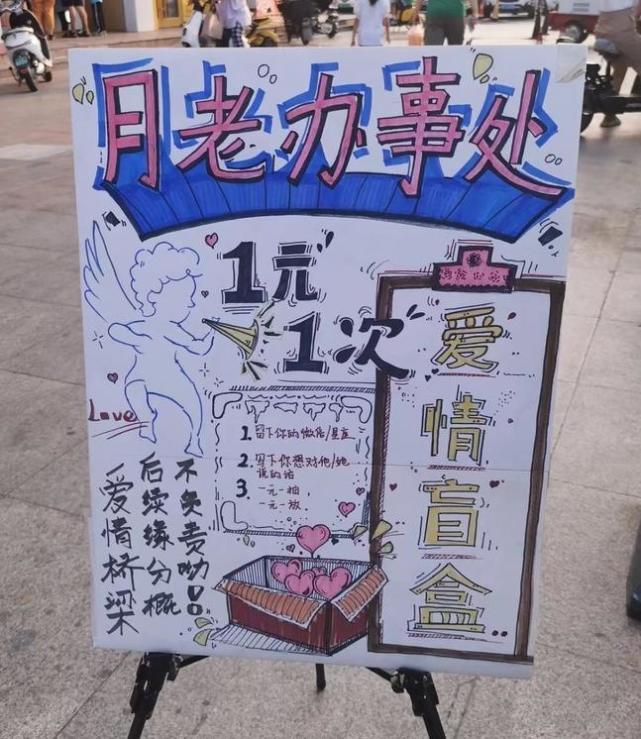 月老办事处
1元
1次
爱情盲盒
Love
1. 留下你的微信/星座
2. 写下你想对他/她
说的话
3. 一元一抽,
一元一放,
爱情桥梁
后续缘分概
不负责呦!